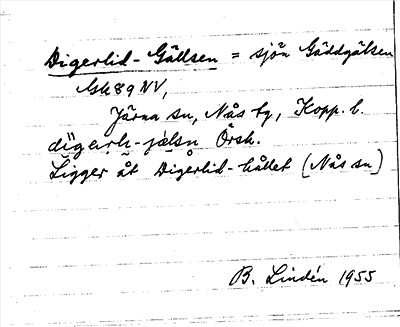 Digerlid-Gällsen = sjön Gäddgälsen
Gk 89 NV,
Järna sn, Nås tg, Kopp. l.
Örsh.
Ligger åt Digerlid-hållet (Nås sn)
B. Lindén 1955